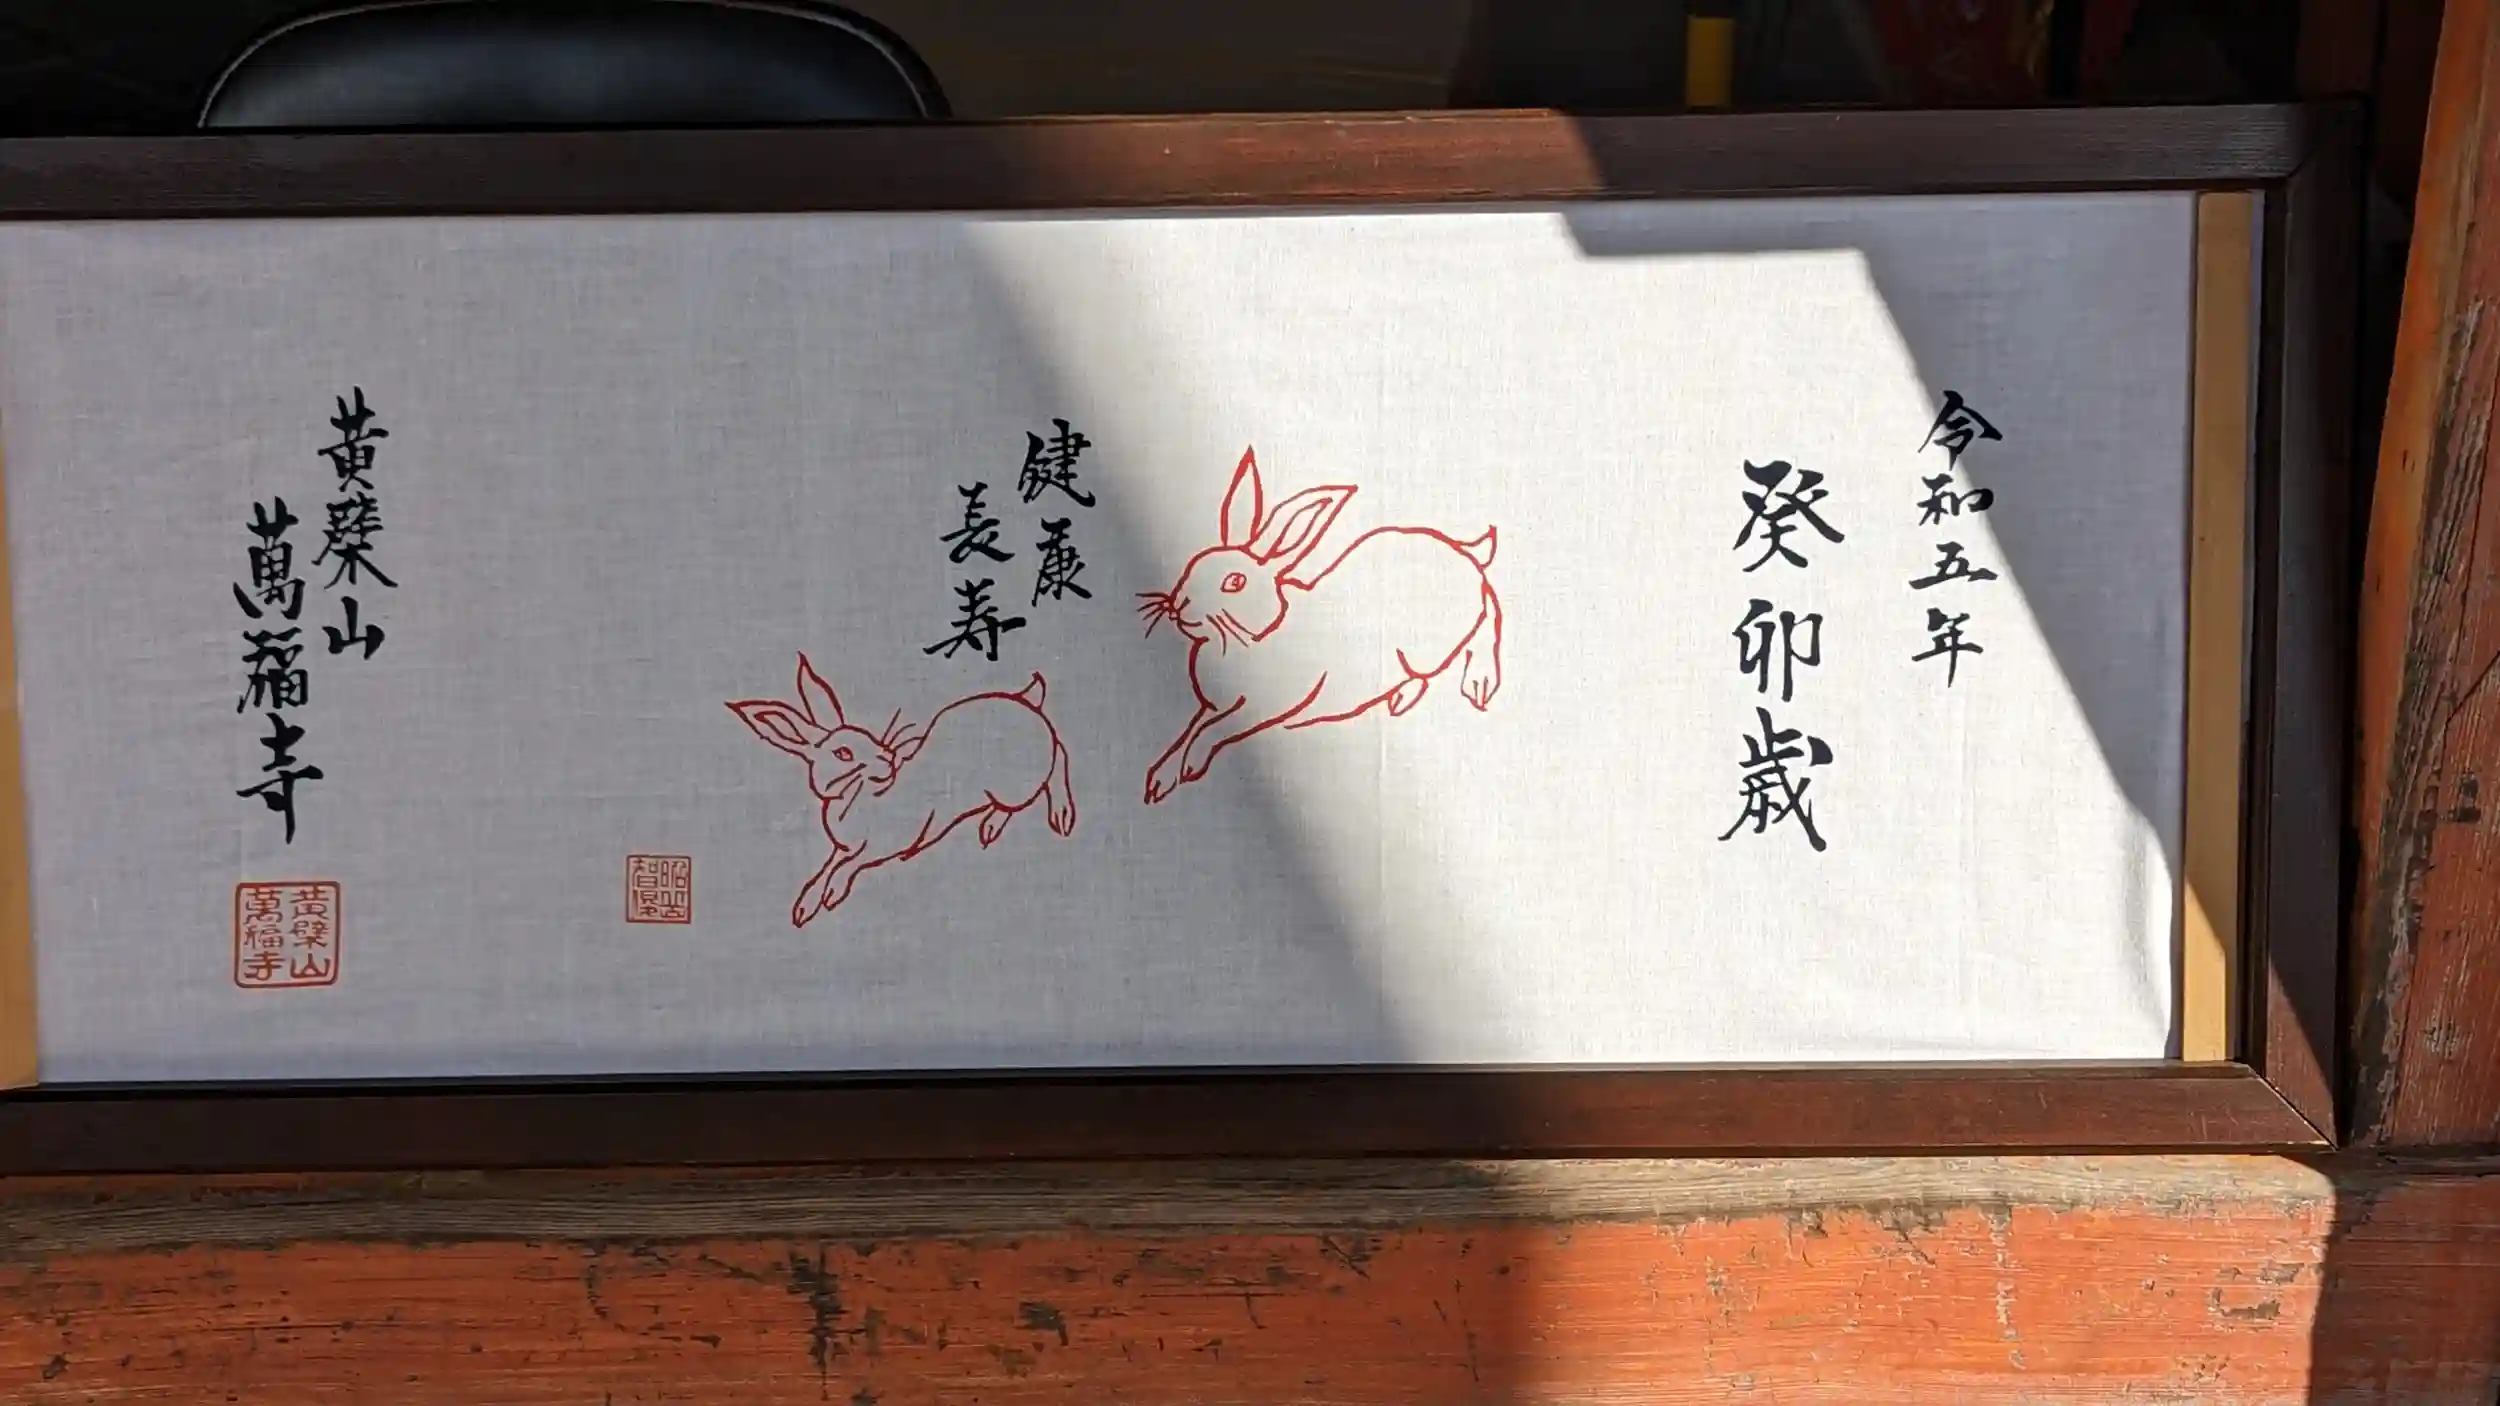 令和五年
癸卯歳
健康
長寿
黄檗山
萬福寺
黄檗山
萬福寺